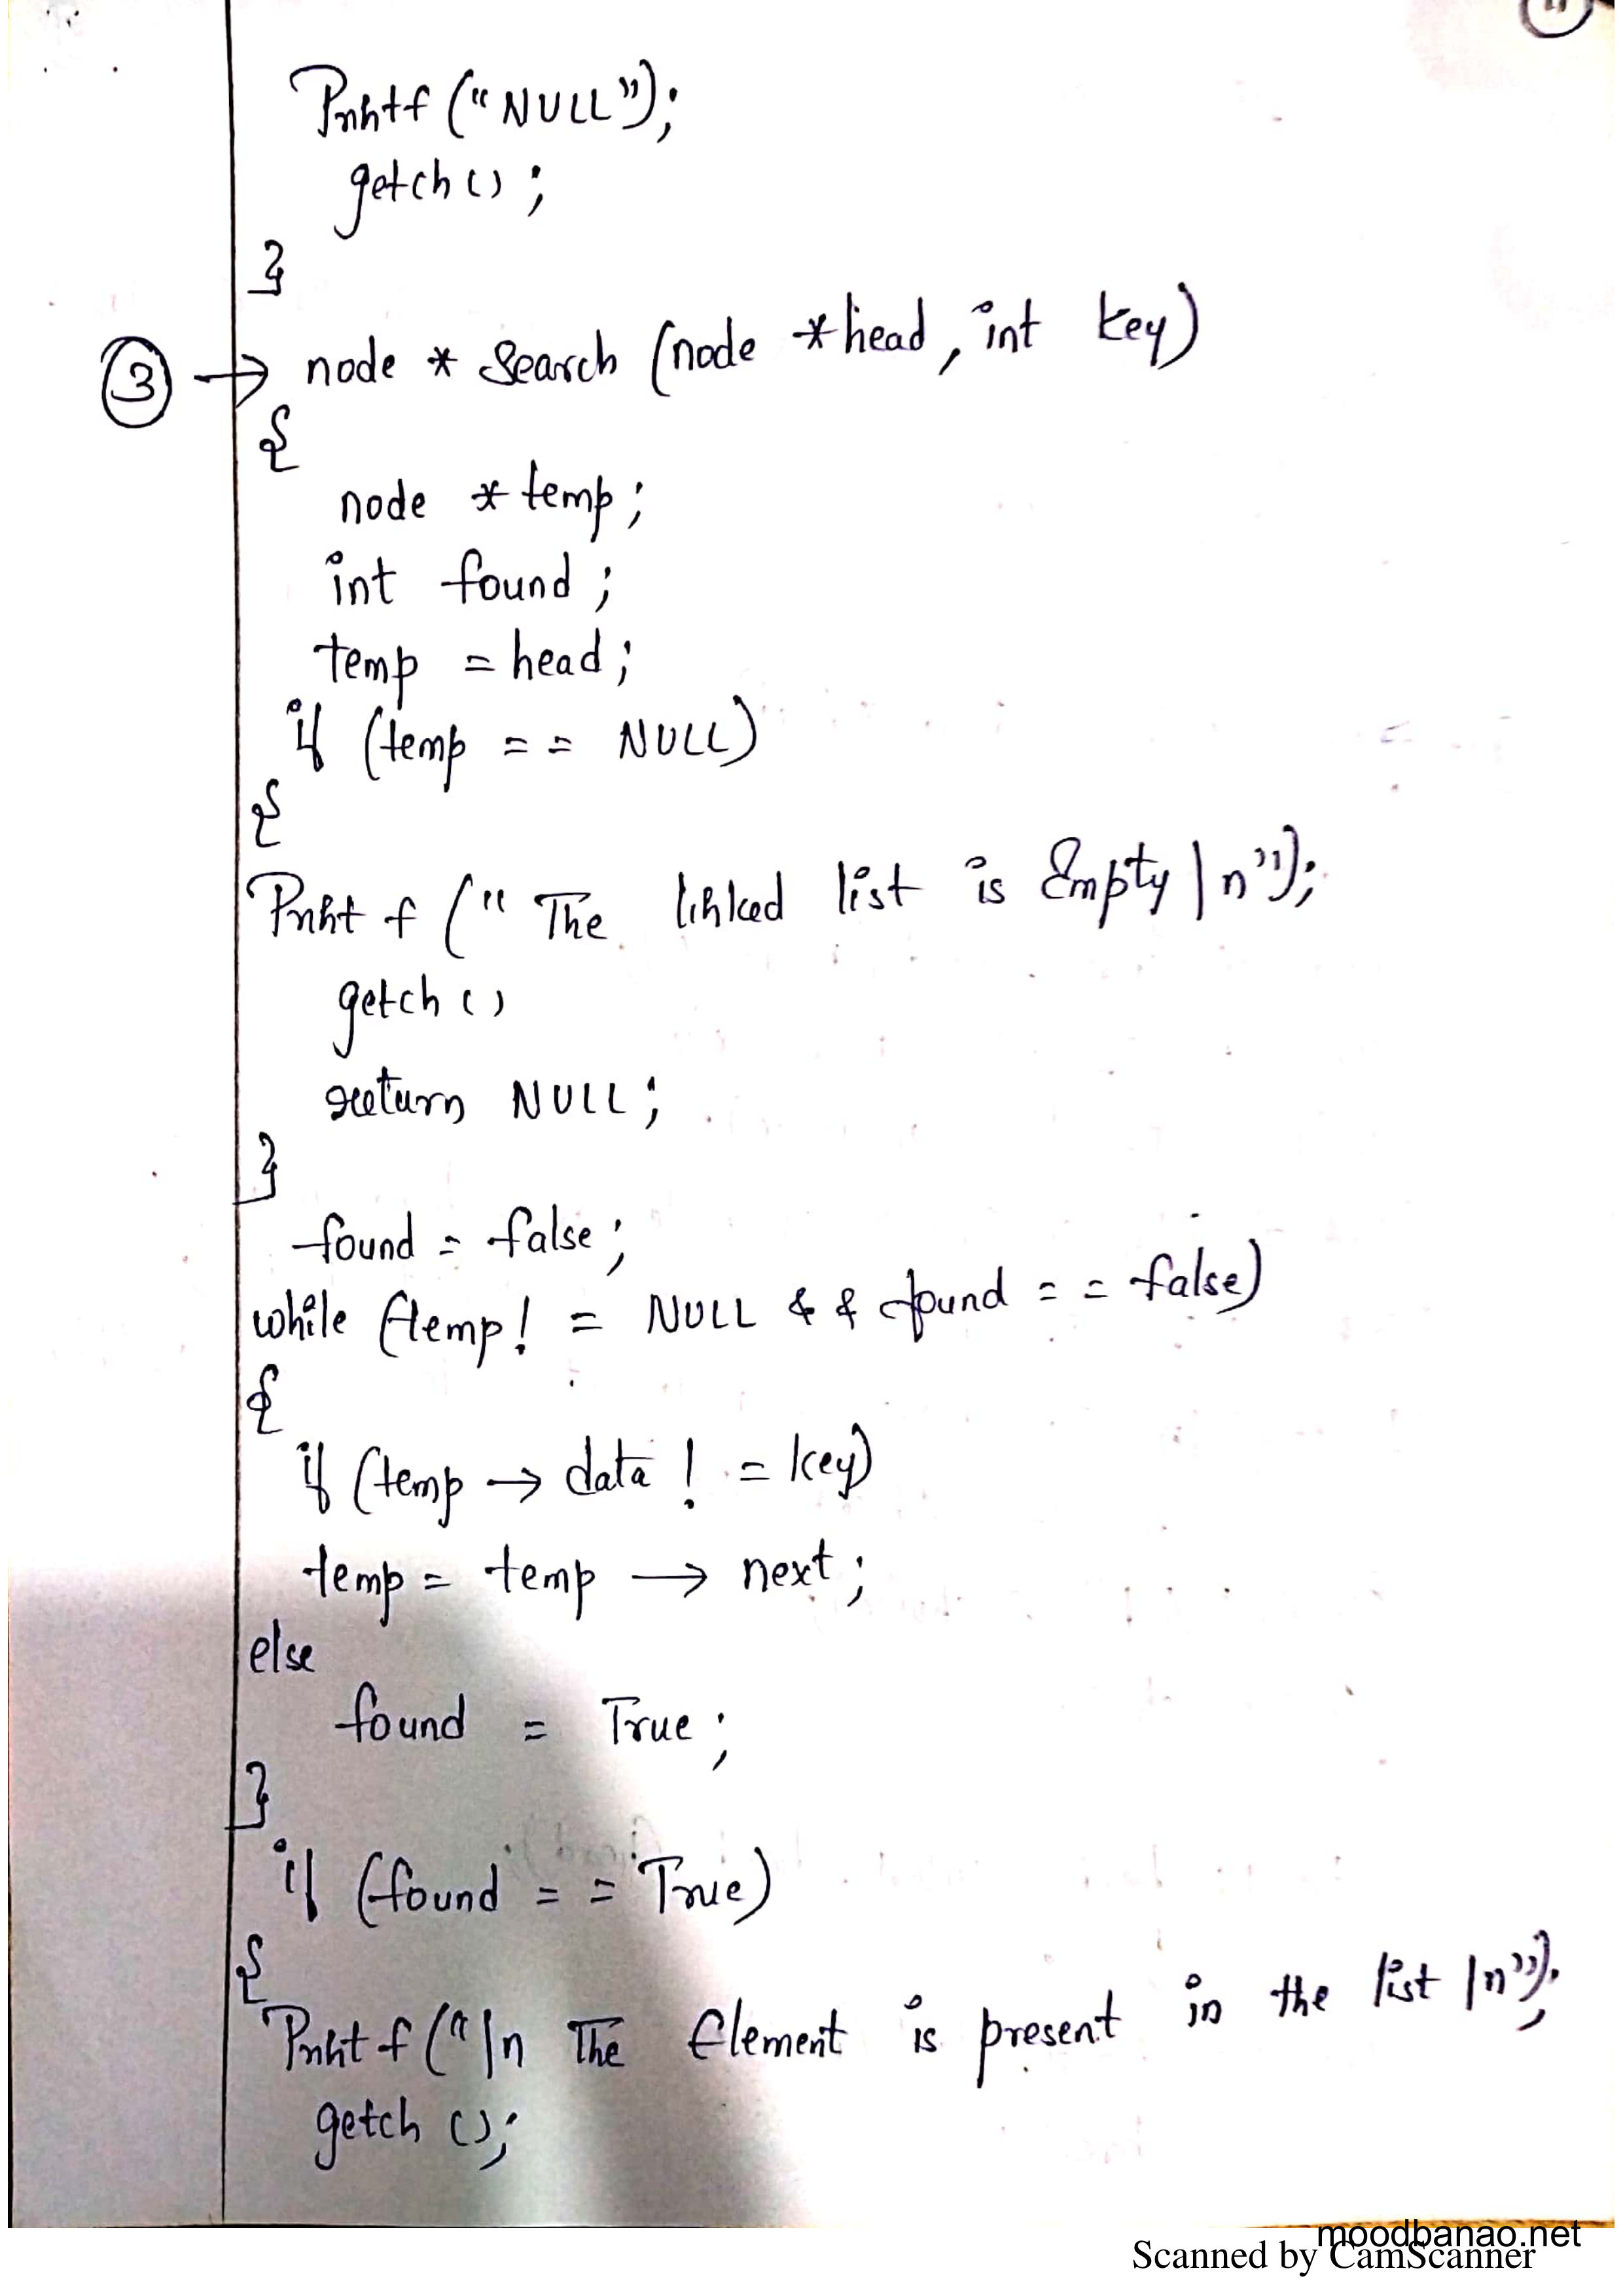 Printf ("NULL");
getch();
}
3 → node * Search (node *head, int key)
{
node * temp;
int found;
temp = head;
if (temp == NULL)
{
Printf ("The linked list is Empty \n");
getch()
return NULL;
}
found = false;
while (temp! = NULL && found == false)
{
if (temp → data ! = key)
temp = temp → next;
else
found = True;
}
if (found == True)
{
Printf ("\n The Element is present in the list \n");
getch ();
moodbanao.net
Scanned by CamScanner